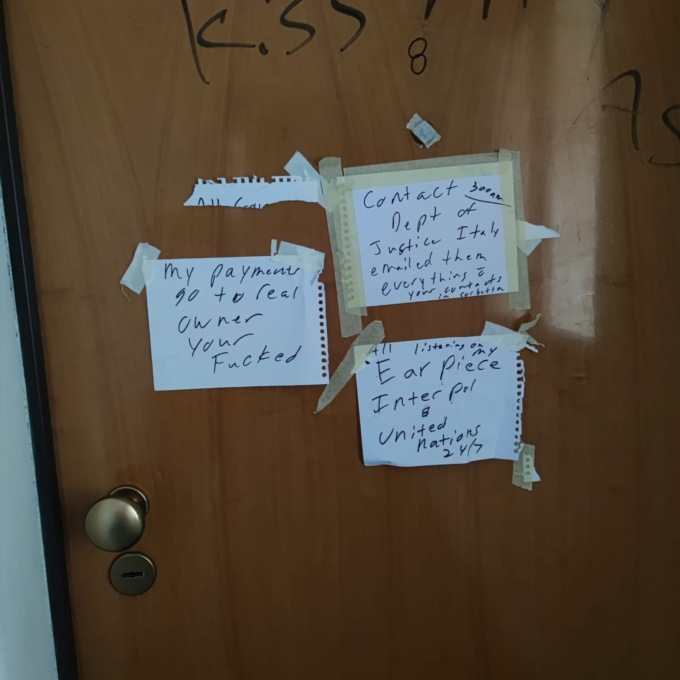 Kiss
8
As
Contact 300am
Dept of
Justice Italy
emailed them
everything &
your contacts
in
my payments
go to real
owner
Your
Fucked
All listening on my
Ear piece
Interpol
&
United
nations
24/7